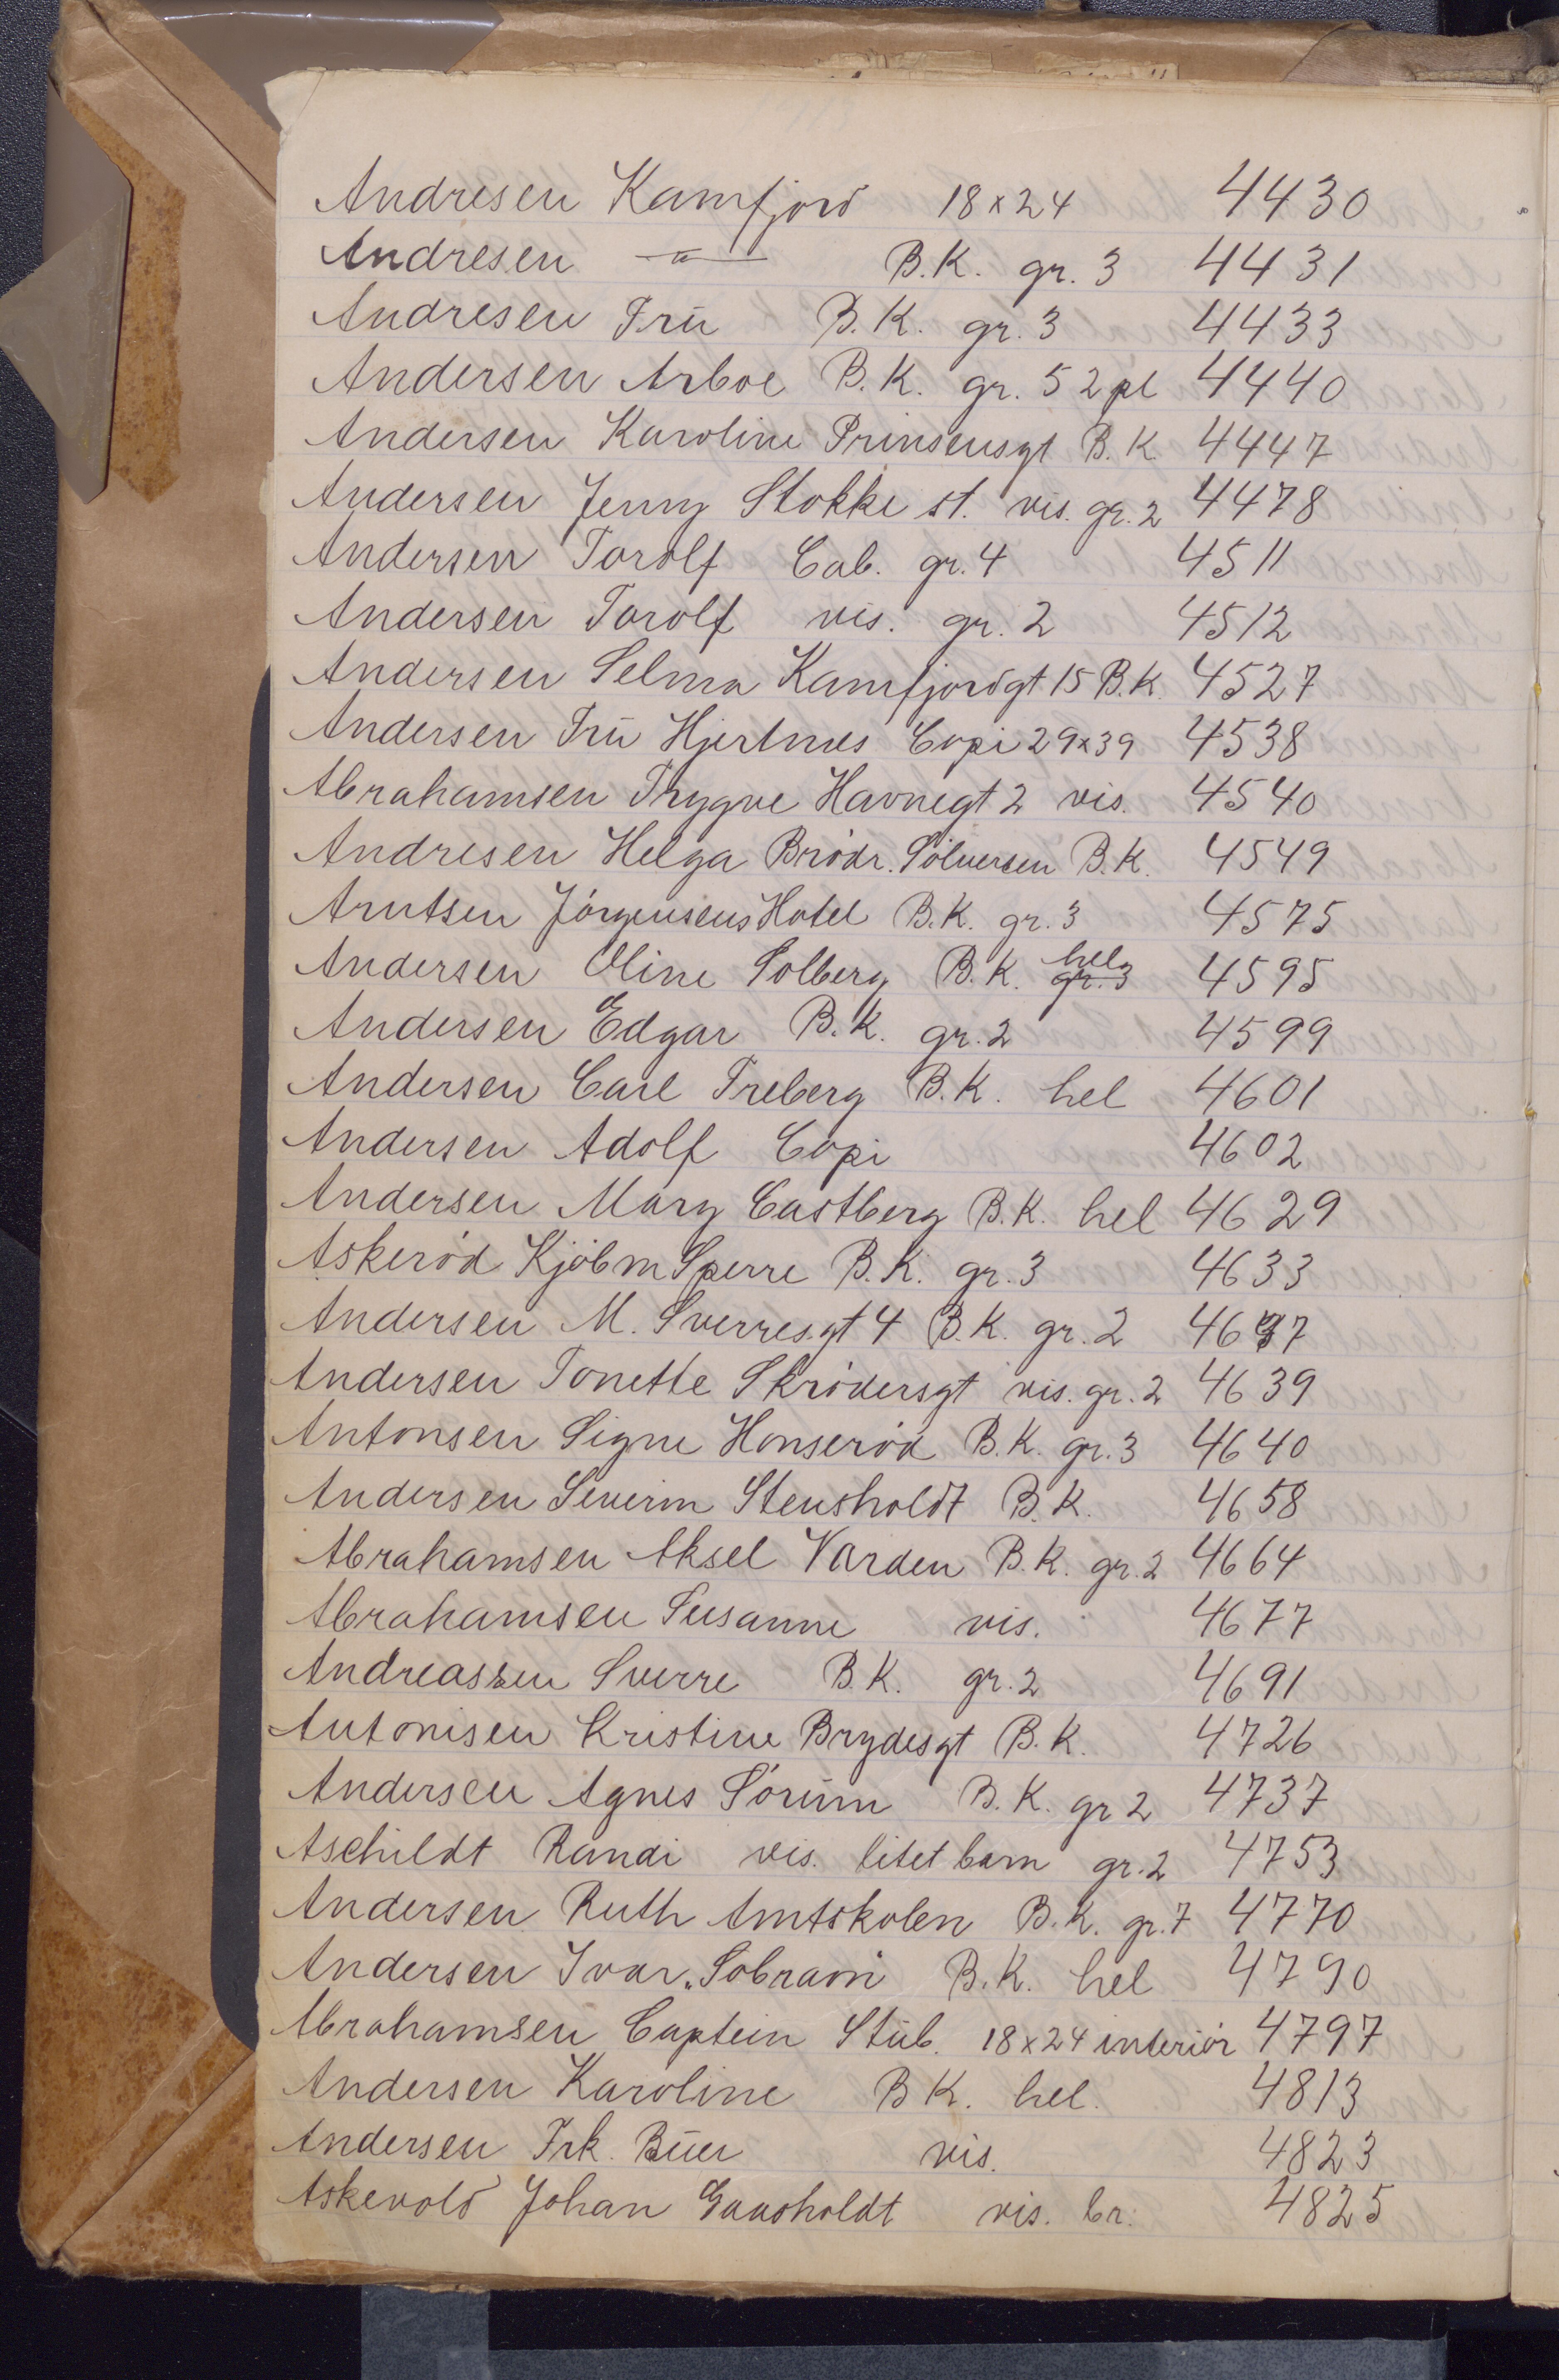 Andresen Kamfjord 18x24 4430
Andresen —"— B.K. gr. 3 4431
Andresen Frū B.K. gr. 3 4433
Andersen Arboe B.K. gr. 5 2 pl 4440
Andersen Karoline Prinsensgt B.K. 4447
Andersen Jenny Stokke st. vis. gr. 2 4478
Andersen Torolf Cab. gr. 4 4511
Andersen Torolf vis. gr. 2 4512
Andersen Selma Kamfjordgt 15 B.K. 4527
Andersen Frū Hjertnes Copi 29x39 4538
Abrahamsen Trygve Havnegt 2 vis. 4540
Andresen Helga Brödr. Sölversen B.K. 4549
Arntsen Jörgensens Hotel B.K. gr. 3 4575
Andersen Oline Solberg B.K. hel gr. 3 4595
Andersen Edgar B.K. gr. 2 4599
Andersen Carl Freberg B.K. hel 4601
Andersen Adolf Copi 4602
Andersen Mary Castberg B.K. hel 4629
Askeröd Kjöbm Sperre B.K. gr. 3 4633
Andersen M. Sverresgt 4 B.K. gr. 2 4637
Andersen Tonette Skrödersgt vis. gr. 2 4639
Antonsen Signe Honseröd B.K. gr. 3 4640
Andersen Severin Stensholdt B.K. 4658
Abrahamsen Aksel Varden B.K. gr. 2 4664
Abrahamsen Susanne vis. 4677
Andreassen Sverre B.K. gr. 2 4691
Antonisen Kristine Brydesgt B.K. 4726
Andersen Agnes Sörūm B.K. gr 2 4737
Aschildt Randi vis. litet barn gr. 2 4753
Andersen Ruth Amtskolen B.K. gr. 7 4770
Andersen Ivar „Sobraon" B.K. hel 4790
Abrahamsen Captein Stūb. 18x24 interiör 4797
Andersen Karoline B K. hel. 4813
Andersen Frk. Būer vis. 4823
Askevold Johan Gaasholdt vis. br. 4825